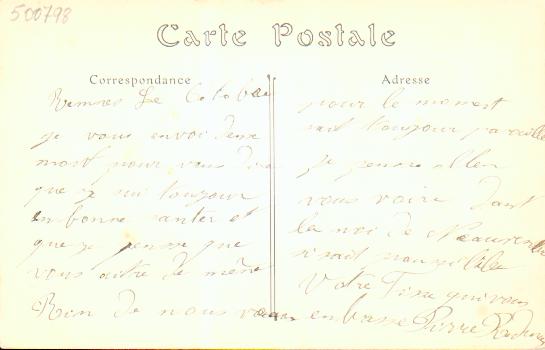 500798
Carte Postale
Correspondance
Rennes Le
je vous envoi deux
most pour vous dire
que je sui toujour
en bonne santer et
que je pense que
vous aitre de même
Rien de nous
Adresse
pour le moment
sait toujour pareille
je pense allen
vous voire dant
la moi de
si sait
votre qui vous
enbrasse Pierre